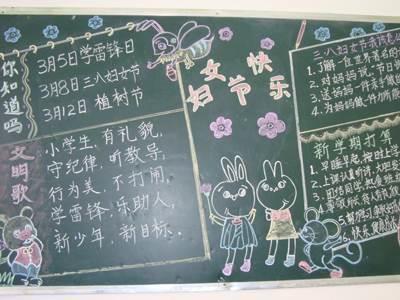 你知道吗
3月5日学雷锋日
3月8日三八妇女节
3月12日植树节
妇女节快乐
文明歌
小学生，有礼貌，
守纪律，听教导，
行为美，不打闹，
学雷锋，乐助人，
新少年，新目标。
三八妇女节我该怎么
1.了解一位世界著名的
2.对妈妈说，节日
3.送妈妈一件亲手做
4.为妈妈做一件力所能
新学期打算
1.早睡早起，按时上学
2.上课认真听讲，
3.团结同学，热爱